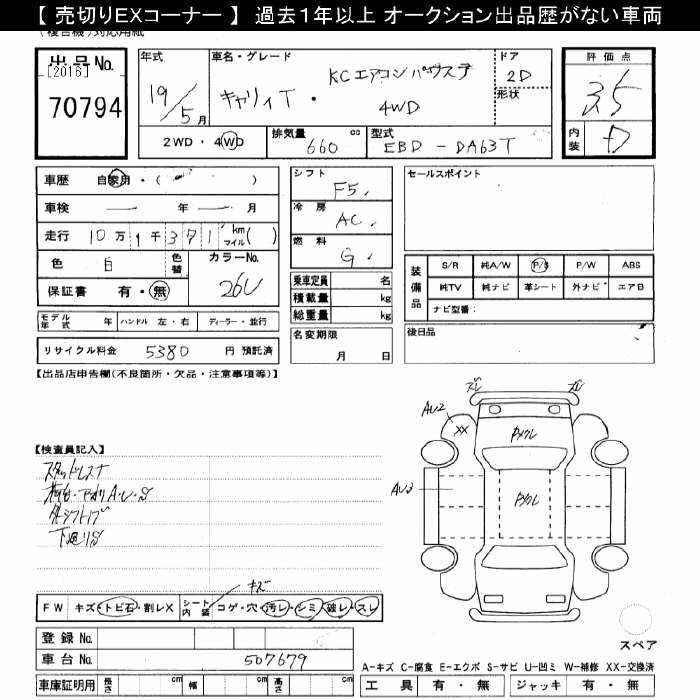 【 売切りEXコーナー 】 過去１年以上 オークション出品歴がない車両
(複合機)対応用紙
出品No.
[2016]
70794
年式
19/5月
車名・グレード
キャリィT・KCエアコンパワステ
4WD
ドア
2D
形状
評価点
3.5
内装
D
2WD・4WD
排気量
660 cc
型式
EBD - DA63T
車歴 自家用・( )
車検 ー 年 ー 月
走行 10万1千371 km マイル( )
色 白 色替
カラーNo.
26U
保証書 有・無
モデル年式 年 ハンドル 左・右 ディーラー・並行
リサイクル料金 5380 円 預託済
シフト
F5.
冷房
AC.
燃料
G.
乗車定員 名
積載量 kg
総重量 kg
名変期限
月 日
セールスポイント
装備品
S/R 純A/W P/S P/W ABS
純TV 純ナビ 革シート 外ナビ エアB
ナビ型番：
後日品
【出品店申告欄(不良箇所・欠品・注意事項等)】
【検査員記入】
スタッドレスナ
荷台・アオリA・U・S
下廻りS
ズレ
AU2
XX
AU3
FW キズ・トビ石・割レX
シート内装 コゲ・穴・汚レ・シミ・破レ・スレ
キズ
登録No.
車台No. 507679
車庫証明用 長さ cm 幅 cm 高さ cm
スペア
A−キズ C−腐食 E−エクボ S−サビ U−凹ミ W−補修 XX−交換済
工具 有・無 ジャッキ 有・無